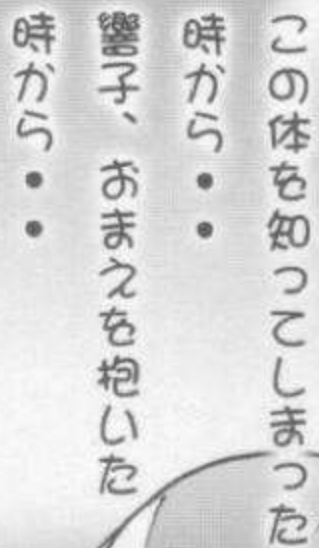 この体を知ってしまった
時から・・
響子、おまえを抱いた
時から・・